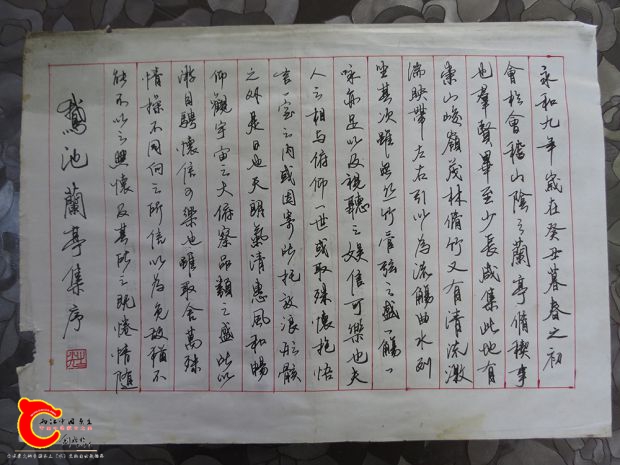 永和九年歲在癸丑暮春之初
會於會稽山陰之蘭亭脩稧事
也羣賢畢至少長咸集此地有
崇山峻嶺茂林脩竹又有清流激
湍映帶左右引以為流觴曲水列
坐其次雖無丝竹管弦之盛一觴一
咏亦足以及視聽之娱信可樂也夫
人之相與俯仰一世或取殊懷抱悟
言一室之內或因寄此托放浪形骸
之外是日也天朗氣清惠風和暢
仰觀宇宙之大俯察品類之盛此以
游目騁懷信可樂也雖取舍萬殊
情操不同向之所信以為故猶不
能不以之興懷及其所之既惓情隨
鵞池蘭亭集序